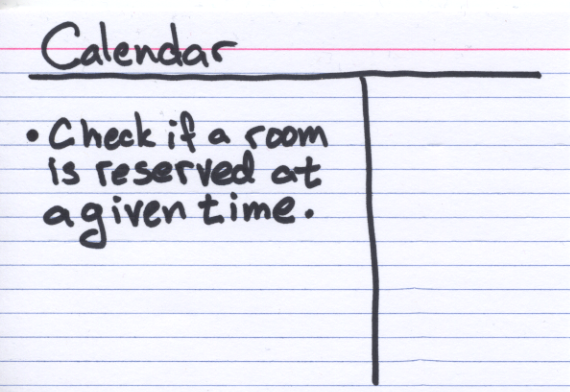 Calendar
• Check if a room
is reserved at
a given time.